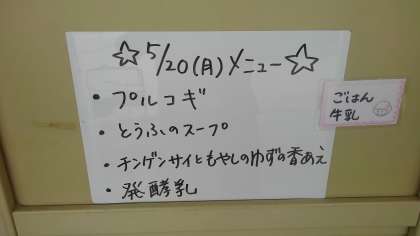 ☆5/20(月)メニュー☆
・プルコギ
・とうふのスープ
・チンゲンサイともやしのゆずの香あえ
・発酵乳
ごはん
牛乳